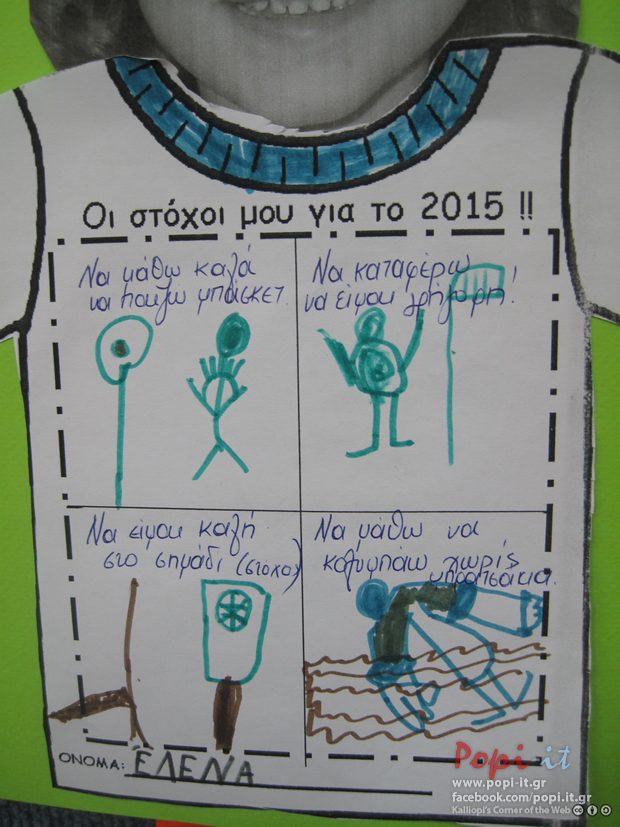 Οι στόχοι μου για το 2015 !!
Να μάθω καλά
να παίζω μπάσκετ.
Να καταφέρω
να είμαι γρήγορη!
Να είμαι καλή
στο σημάδι (στόχο)
Να μάθω να
κολυμπάω χωρίς
μπρατσάκια.
ΟΝΟΜΑ: ΕΛΕΝΑ
Popi it
www.popi-it.gr
facebook.com/popi.it.gr
Kalliopi's Corner of the Web